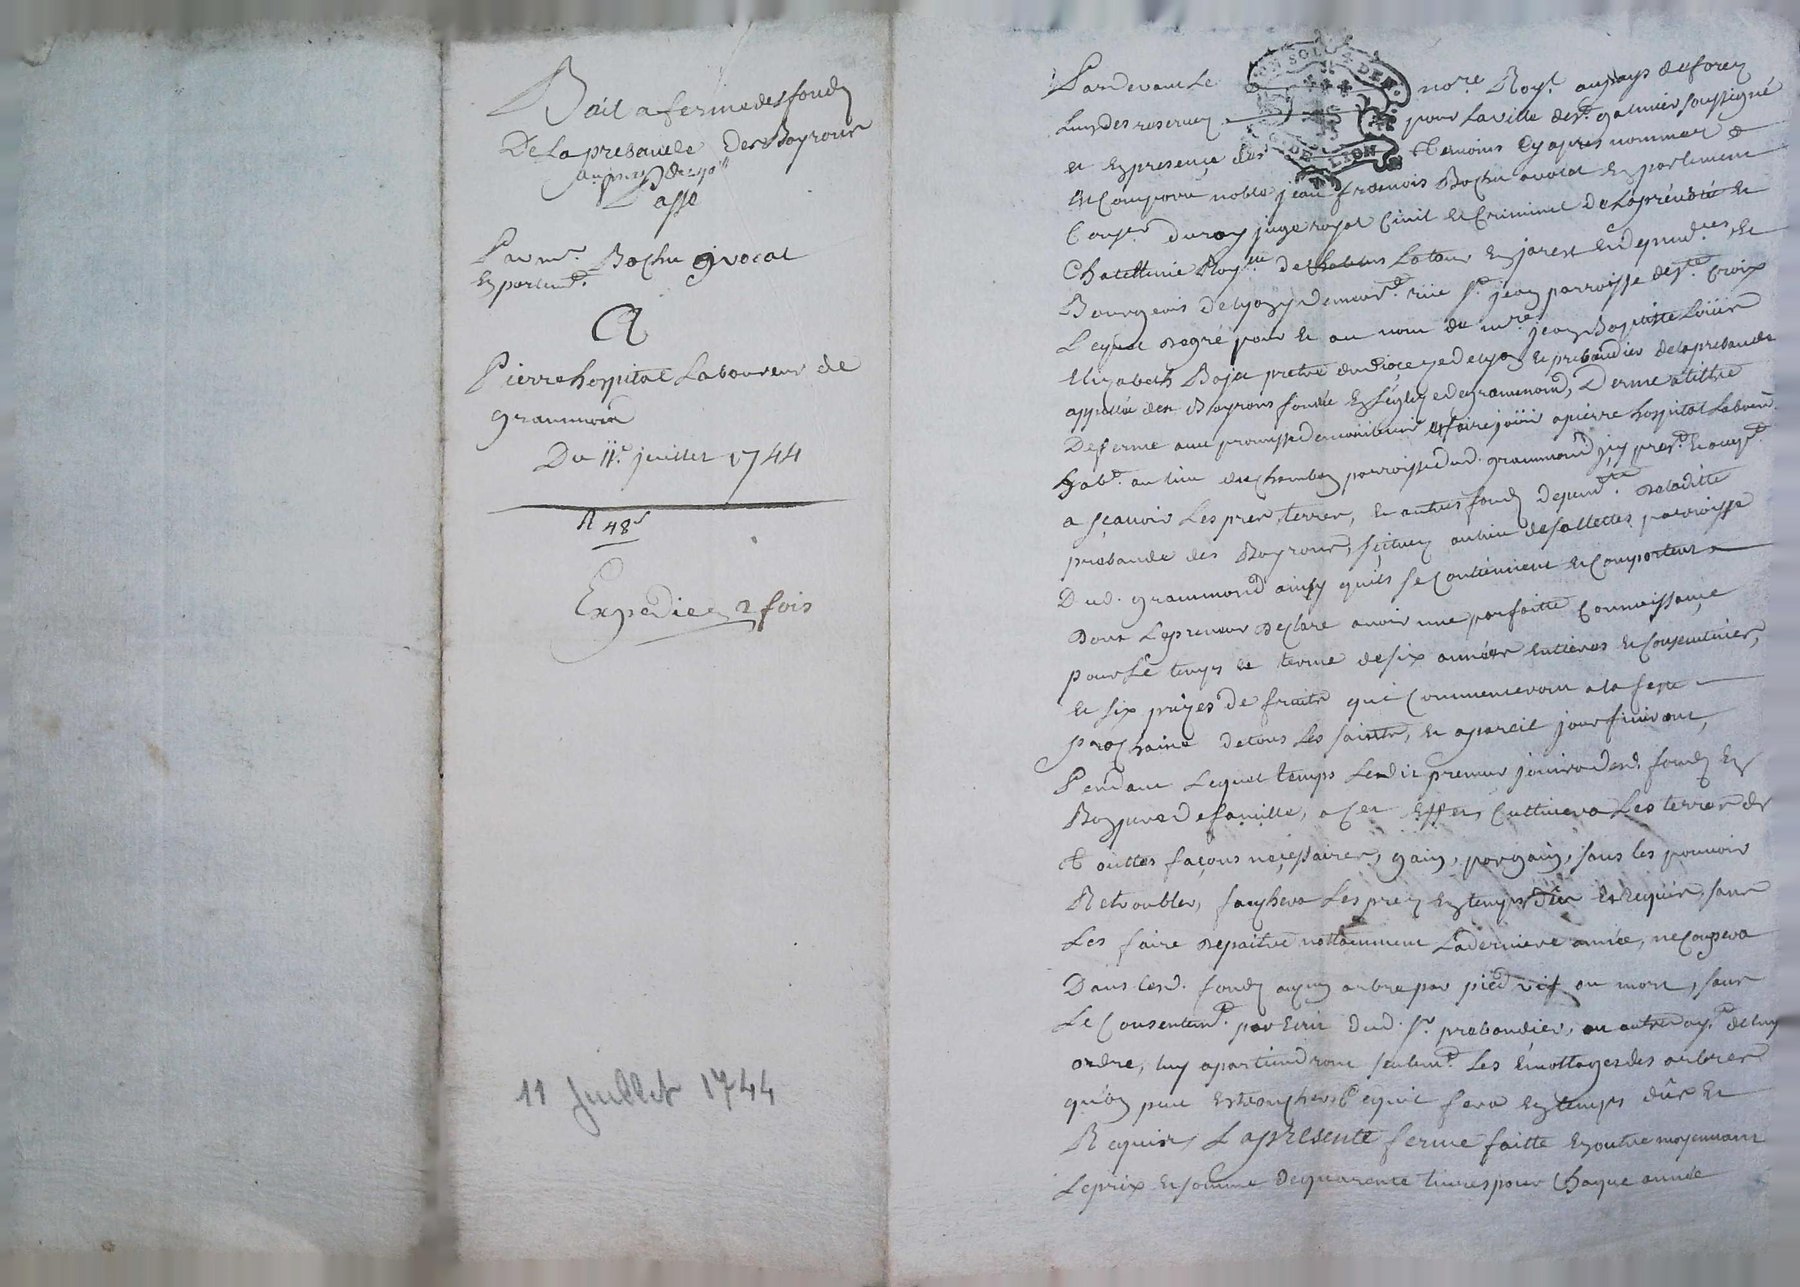 Bail a ferme des fondz
De La prebande des Boyrons
au prix de 40 ll
Passé
Par mr. Bochu avocat
En parlemt.
A
Pierre hospital Laboureur de
grammond
Du 11e. juillet 1744
R 48 s
Expediée 2 fois
11 Juillet 1744
Pardevant Le nore. Royl. au pays de forez
pour La ville de st. galmier soussigné
et En presence des temoins Cy apres nommez
est Comparu noble jean francois Bochu avocat En parlement
Conser. du roy juge royal Civil et Criminel De La prévôté et
Chatellenie Royalle de Latour En jarest et dependces. et
Bourgeois de Lyon y demeurt. rüe st. jean parroisse de ste. Croix
Lequel degré pour et au nom de mre. jean Baptiste Loüis
Elizabeth Bajet pretre du dioceze de Lyon et prebandier de la prebande
appellée des Boyrons fondée En L'eglize de grammond, Donne a tiltre
De ferme avec promesse de maintenir et faire jöuir a pierre hospital Labour.
habt. au lieu de Chambon parroisse dud. grammond jcy prest. et accept.
a sçavoir Les prez terres, et autres fondz dependts. de la ditte
prebande des Boyrons, scituez au lieu de sallettes parroisse
Dud. grammond ainsy quils se Contiennent et Comportent
dont Le preneur declare avoir une parfaitte Connoissance
pour Le temps et terme de six années Entieres et Consecutives,
et six prizes de fruits qui Commenceront a la feste
prochaine de tous Les saints, et a pareil jour finiront,
Pendant Lequel temps Ledit preneur jouira desd. fondz En
Bon pere De famille, a Cet Effet Cultivera Les terres de
touttes façons necessaires, gain, pargain, sans les pouvoir
Retroubler, fauchera Les prez En temps dû et Requis, sans
Les faire depaitre nottamment La derniere année, ne Coupera
Dans lesd. fondz aucun arbre par pied vif ou mort, sans
Le Consentemt. par Ecrit dud. sr. prebandier, ou autre ayt. de luy
ordre, luy apartiendront seulemt. Les Emottages des arbres
qu'on peut Ebrancher Ce quil fera En temps dûe et
Requis, La presente ferme faitte En outre moyennant
Le prix et somme de quarente livres pour Chaque année